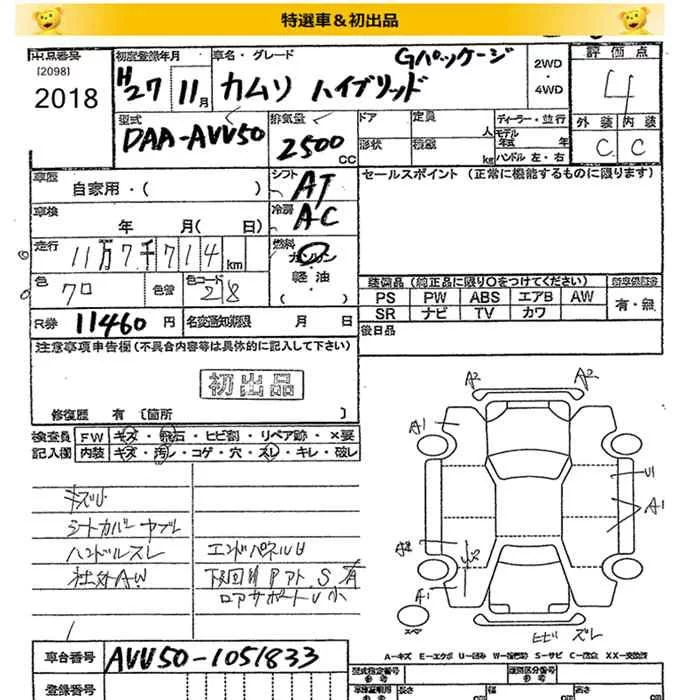 特選車&初出品
出品番号 初度登録年月 車名・グレード Gパッケージ 2WD・4WD 評価点
[2098]
2018 H27 11月 カムリ ハイブリッド 4
型式 排気量 ドア 定員 人 ディーラー・並行 外装 内装
DAA-AVV50 2500 CC 形状 積載 kg モデル 年式 年 ハンドル 左・右 C C
車歴 自家用・( ) シフト AT セールスポイント (正常に機能するものに限ります)
車検 年 月( 日) 冷房 AC
走行 11万7千714km 燃料 ガソリン
軽油
( )
色 クロ 色替 色コード 28
装備品 (純正品に限り○をつけてください)
PS PW ABS エアB AW 有・無
SR ナビ TV カワ
R券 11460 円 名変通知期限 月 日
後日品
注意事項申告欄(不具合内容等は具体的に記入して下さい)
初出品
修復歴 有 [箇所 ]
検査員 FW キズ・飛石・ヒビ割・リペア跡・×要
記入欄 内装 キズ・汚レ・コゲ・穴・スレ・キレ・破レ
A2 A2
A1
キズU
シートカバーヤブレ
ハンドルスレ エンドパネルU
社外AW 下回サビアト、S有
ロアサポートU小
U1
A1
A2
A1
スペア
ヒビ ズレ
A-キズ E-エクボ U-凹み W-補修跡 S-サビ C-腐食 XX-交換済
車台番号 AVV50-1051833
登録番号
型式指定番号 参考 類別区分番号 参考
長さ 幅 高さ